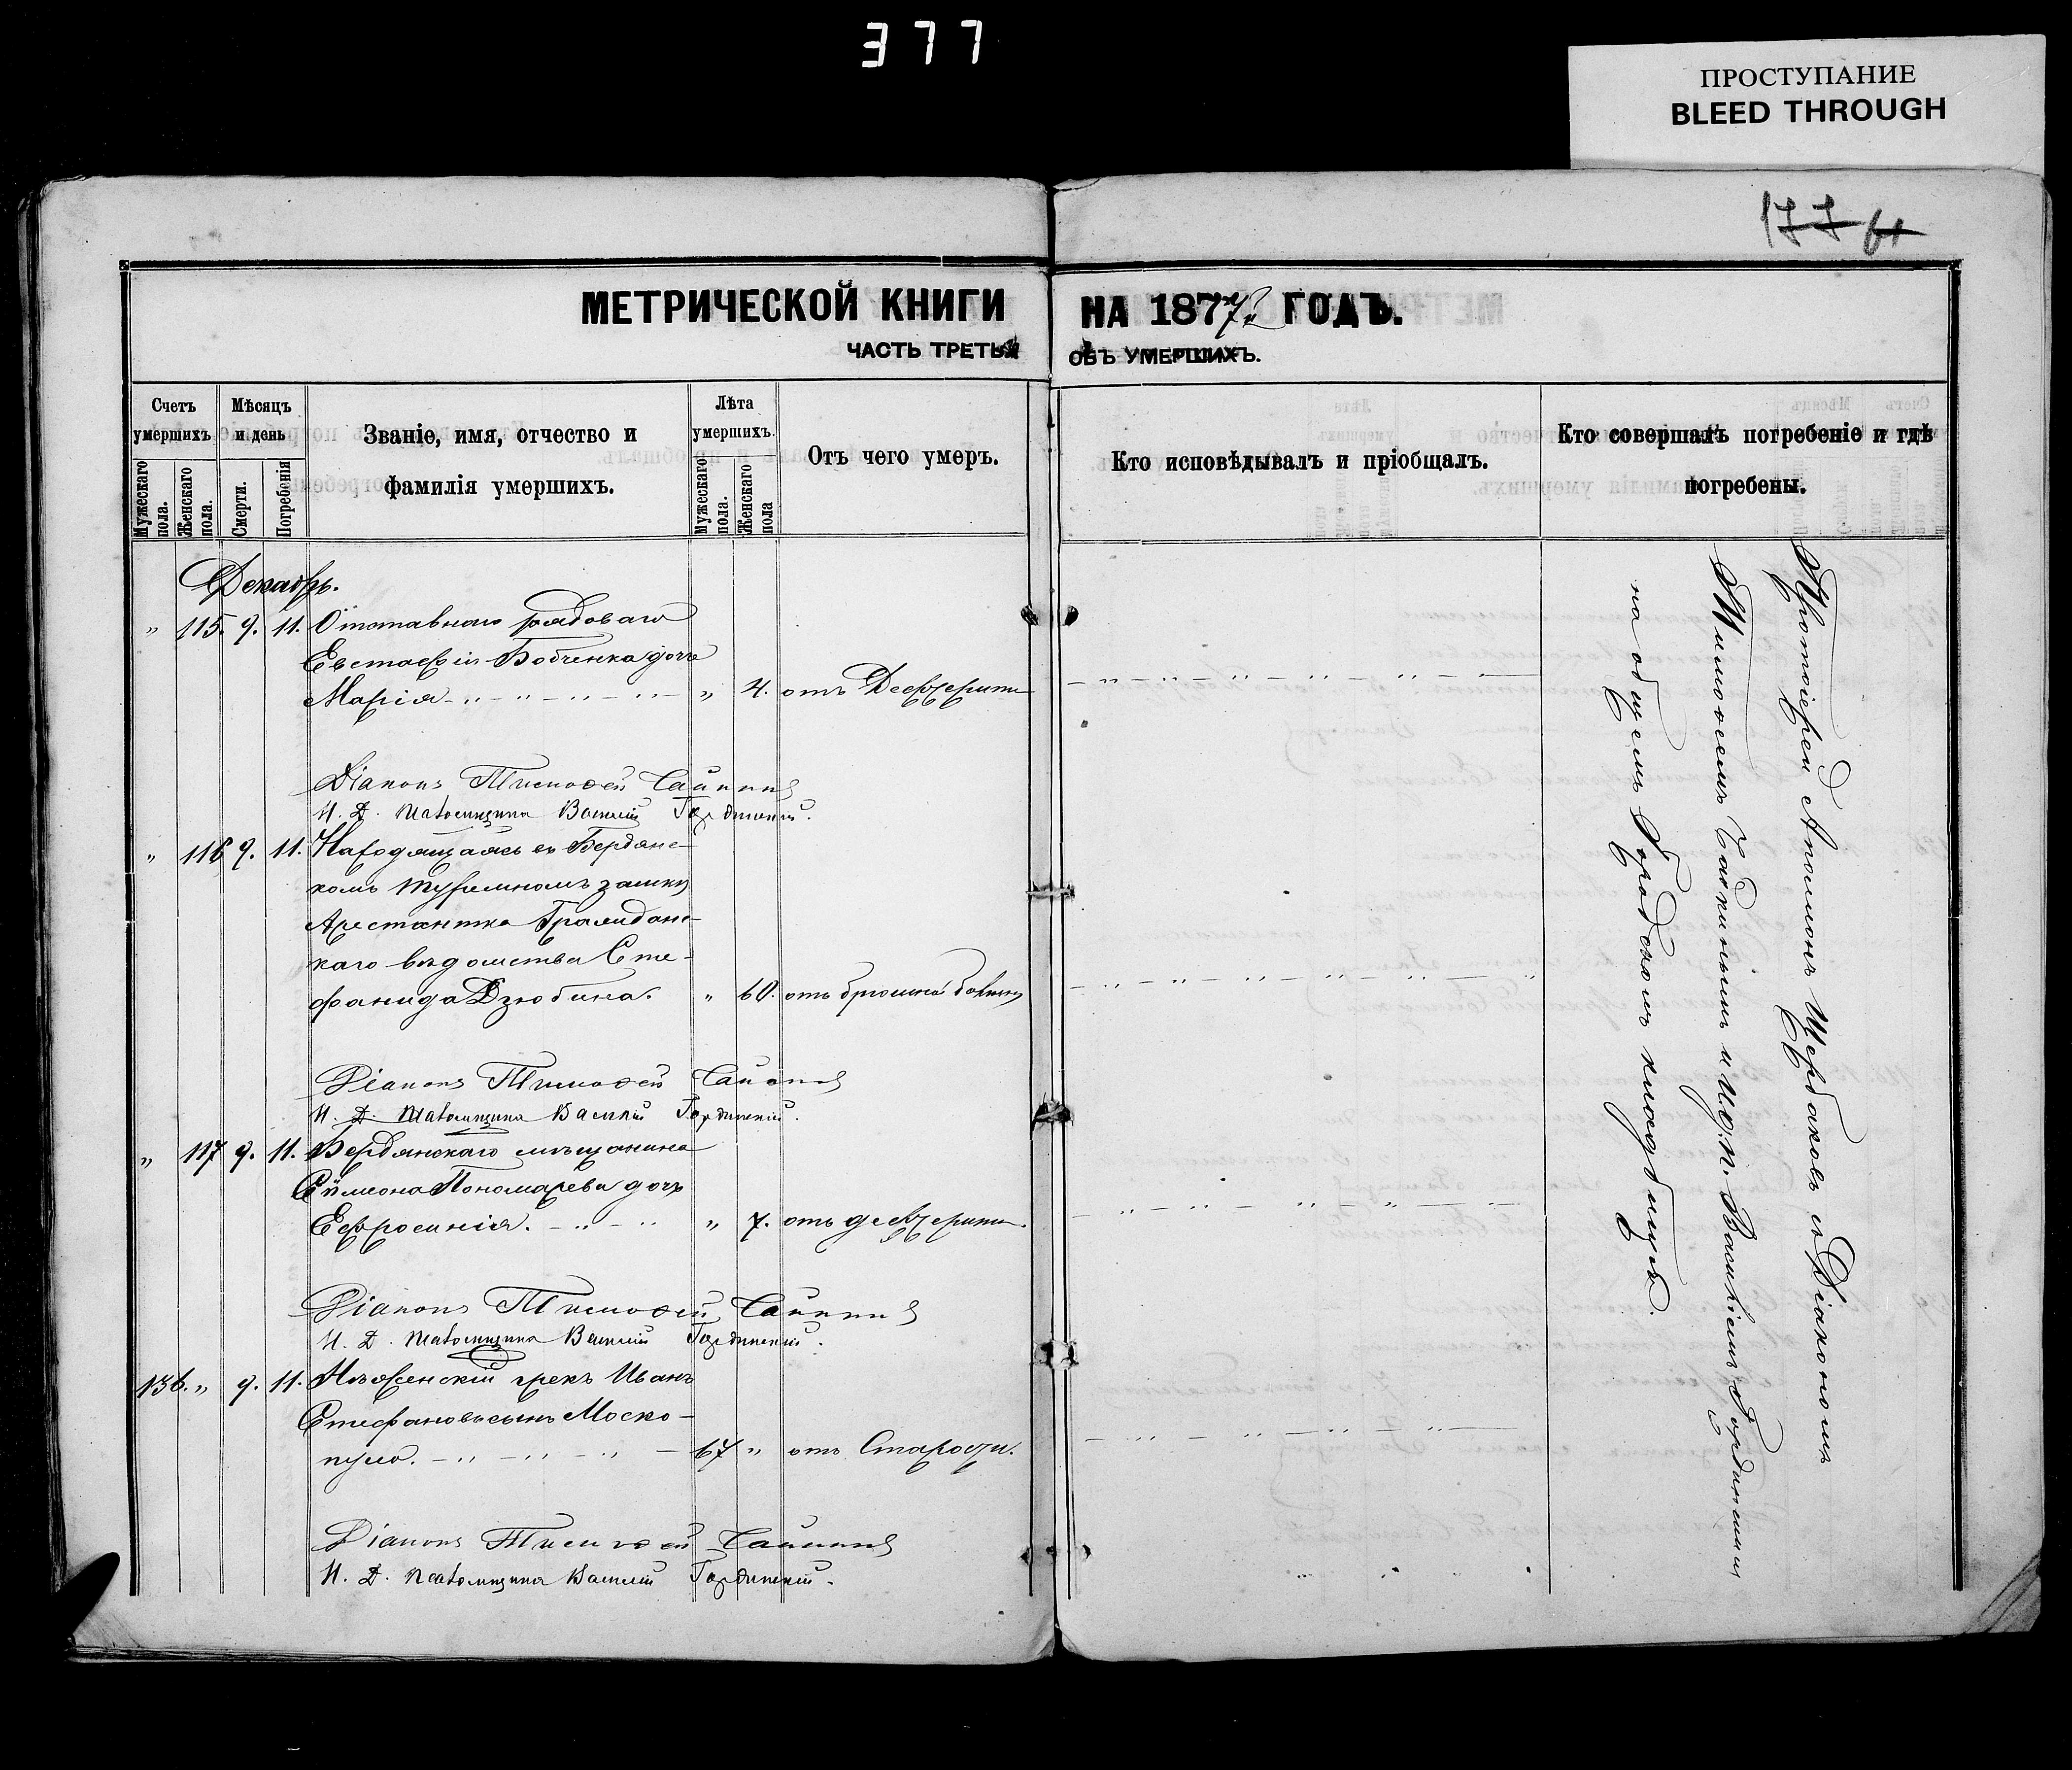 377
ПРОСТУПАНИЕ
BLEED THROUGH
177 61
МЕТРИЧЕСКОЙ КНИГИ НА 1877 ГОДЪ.
ЧАСТЬ ТРЕТЬЯ ОБЪ УМЕРШИХЪ.
Счетъ умершихъ
Мужескаго пола.
Женскаго пола.
Мѣсяцъ и день
Смерти.
Погребенія
Званіе, имя, отчество и
фамилія умершихъ.
Лѣта умершихъ.
Мужескаго пола.
Женскаго пола
Отъ чего умеръ.
Кто исповѣдывалъ и пріобщалъ.
Кто совершалъ погребеніе и гдѣ
погребены.
Декабрь.
" 115. 9. 11. Отставнаго рядоваго
Евстафія Бобченка дочь
Марія - " - " - " - " - " 4. отъ Дефтерита
Діаконъ Тимофей Чайкинъ
И. Д. Псаломщика Василій Гординскій.
" 116 9. 11. Находящаяся въ Бердянс-
комъ тюремномъ замкѣ
Арестантка Граждане-
каго вѣдомства Сте-
фанида Дзюбина. " 60. отъ брюшной болѣзни
Діаконъ Тимофей Чайкинъ
И. Д. Псаломщика Василій Гординскій.
" 117 9. 11. Бердянскаго мѣщанина
Сѵмеона Пономарева дочь
Ефросинія. - " - " " 7. отъ дефтерита.
Діаконъ Тимофей Чайкинъ
И. Д. Псаломщика Василій Гординскій.
136. " 9. 11. Нѣженскій грекъ Иванъ
Стефановъ сынъ Моско-
пуло. - " - " - " - 67 " отъ Старости.
Діаконъ Тимофей Чайкинъ
И. Д. Псаломщика Василій Гординскій.
Протоіерей Аполлонъ Щербаковъ съ Діакономъ
Тимофеемъ Чайкинымъ и И.д.п. Василіемъ Гординскимъ
на общемъ Городскомъ кладбищѣ.